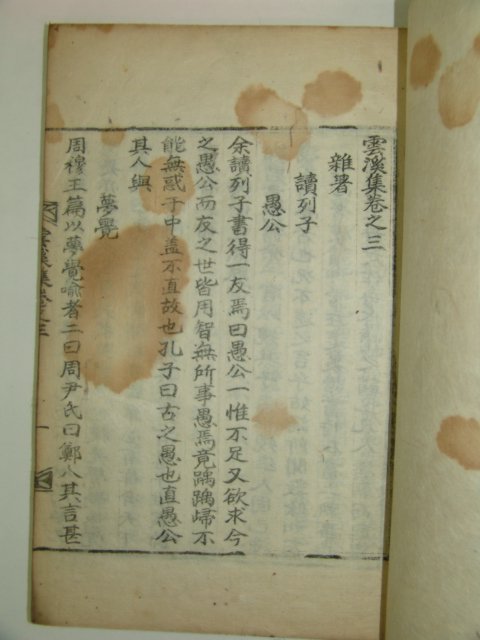 雲溪集卷之三
雜著
讀列子
愚公
余讀列子書得一友焉曰愚公一惟不足又欲求今
之愚公而友之世皆用智無所事愚焉竟踽踽歸不
能無惑于中盖不直故也孔子曰古之愚也直愚公
其人與
夢覺
周穆王篇以夢覺喩者二曰周尹氏曰鄭人其言甚
雲溪集卷之三
一